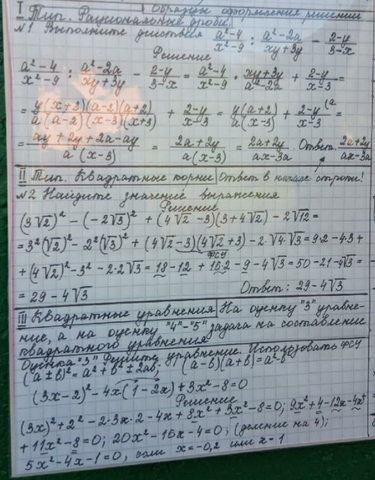 Образцы оформления решений
I Тип. Рациональные дроби.
№1 Выполните действия (a²-4)/(x²-9) : (a²-2a)/(xy+3y) - (2-y)/(3-x)
Решение
(a²-4)/(x²-9) : (a²-2a)/(xy+3y) - (2-y)/(3-x) = (a²-4)/(x²-9) · (xy+3y)/(a²-2a) + (2-y)/(x-3) =
= y(x+3)(a-2)(a+2)/(a(a-2)(x-3)(x+3)) + (2-y)/(x-3) = y(a+2)/(a(x-3)) + (2-y)/(x-3) =
= (ay+2y+2a-ay)/(a(x-3)) = (2a+2y)/(a(x-3)) = (2a+2y)/(ax-3a) Ответ: (2a+2y)/(ax-3a)
II Тип. Квадратные корни. Ответ в начале строки!
№2 Найдите значение выражения
Решение
(3√2)² - (-2√3)² + (4√2-3)(3+4√2) - 2√12 =
= 3²(√2)² - 2²(√3)² + (4√2-3)(4√2+3) - 2·√4√3 = 9·2-4·3+
ФСУ
+(4√2)²-3²-2·2√3 = 18-12+16·2-9-4√3 = 50-21-4√3 =
= 29-4√3 Ответ: 29-4√3
III Квадратные уравнения На оценку "3" уравне-
ние, а на оценку "4"-"5" задача на составление
квадратного уравнения.
Оценка "3" Решить уравнение. Использовать ФСУ
(a±b)² = a²+b²±2ab; (a-b)(a+b) = a²-b²
(3x-2)²-4x(1-2x)+3x²-8=0
Решение
(3x)²+2²-2·3x·2-4x+8x²+3x²-8=0; 9x²+4-12x-4x+
+11x²-8=0; 20x²-16x-4=0; (деление на 4);
5x²-4x-1=0; если x=-0,2 или x=1